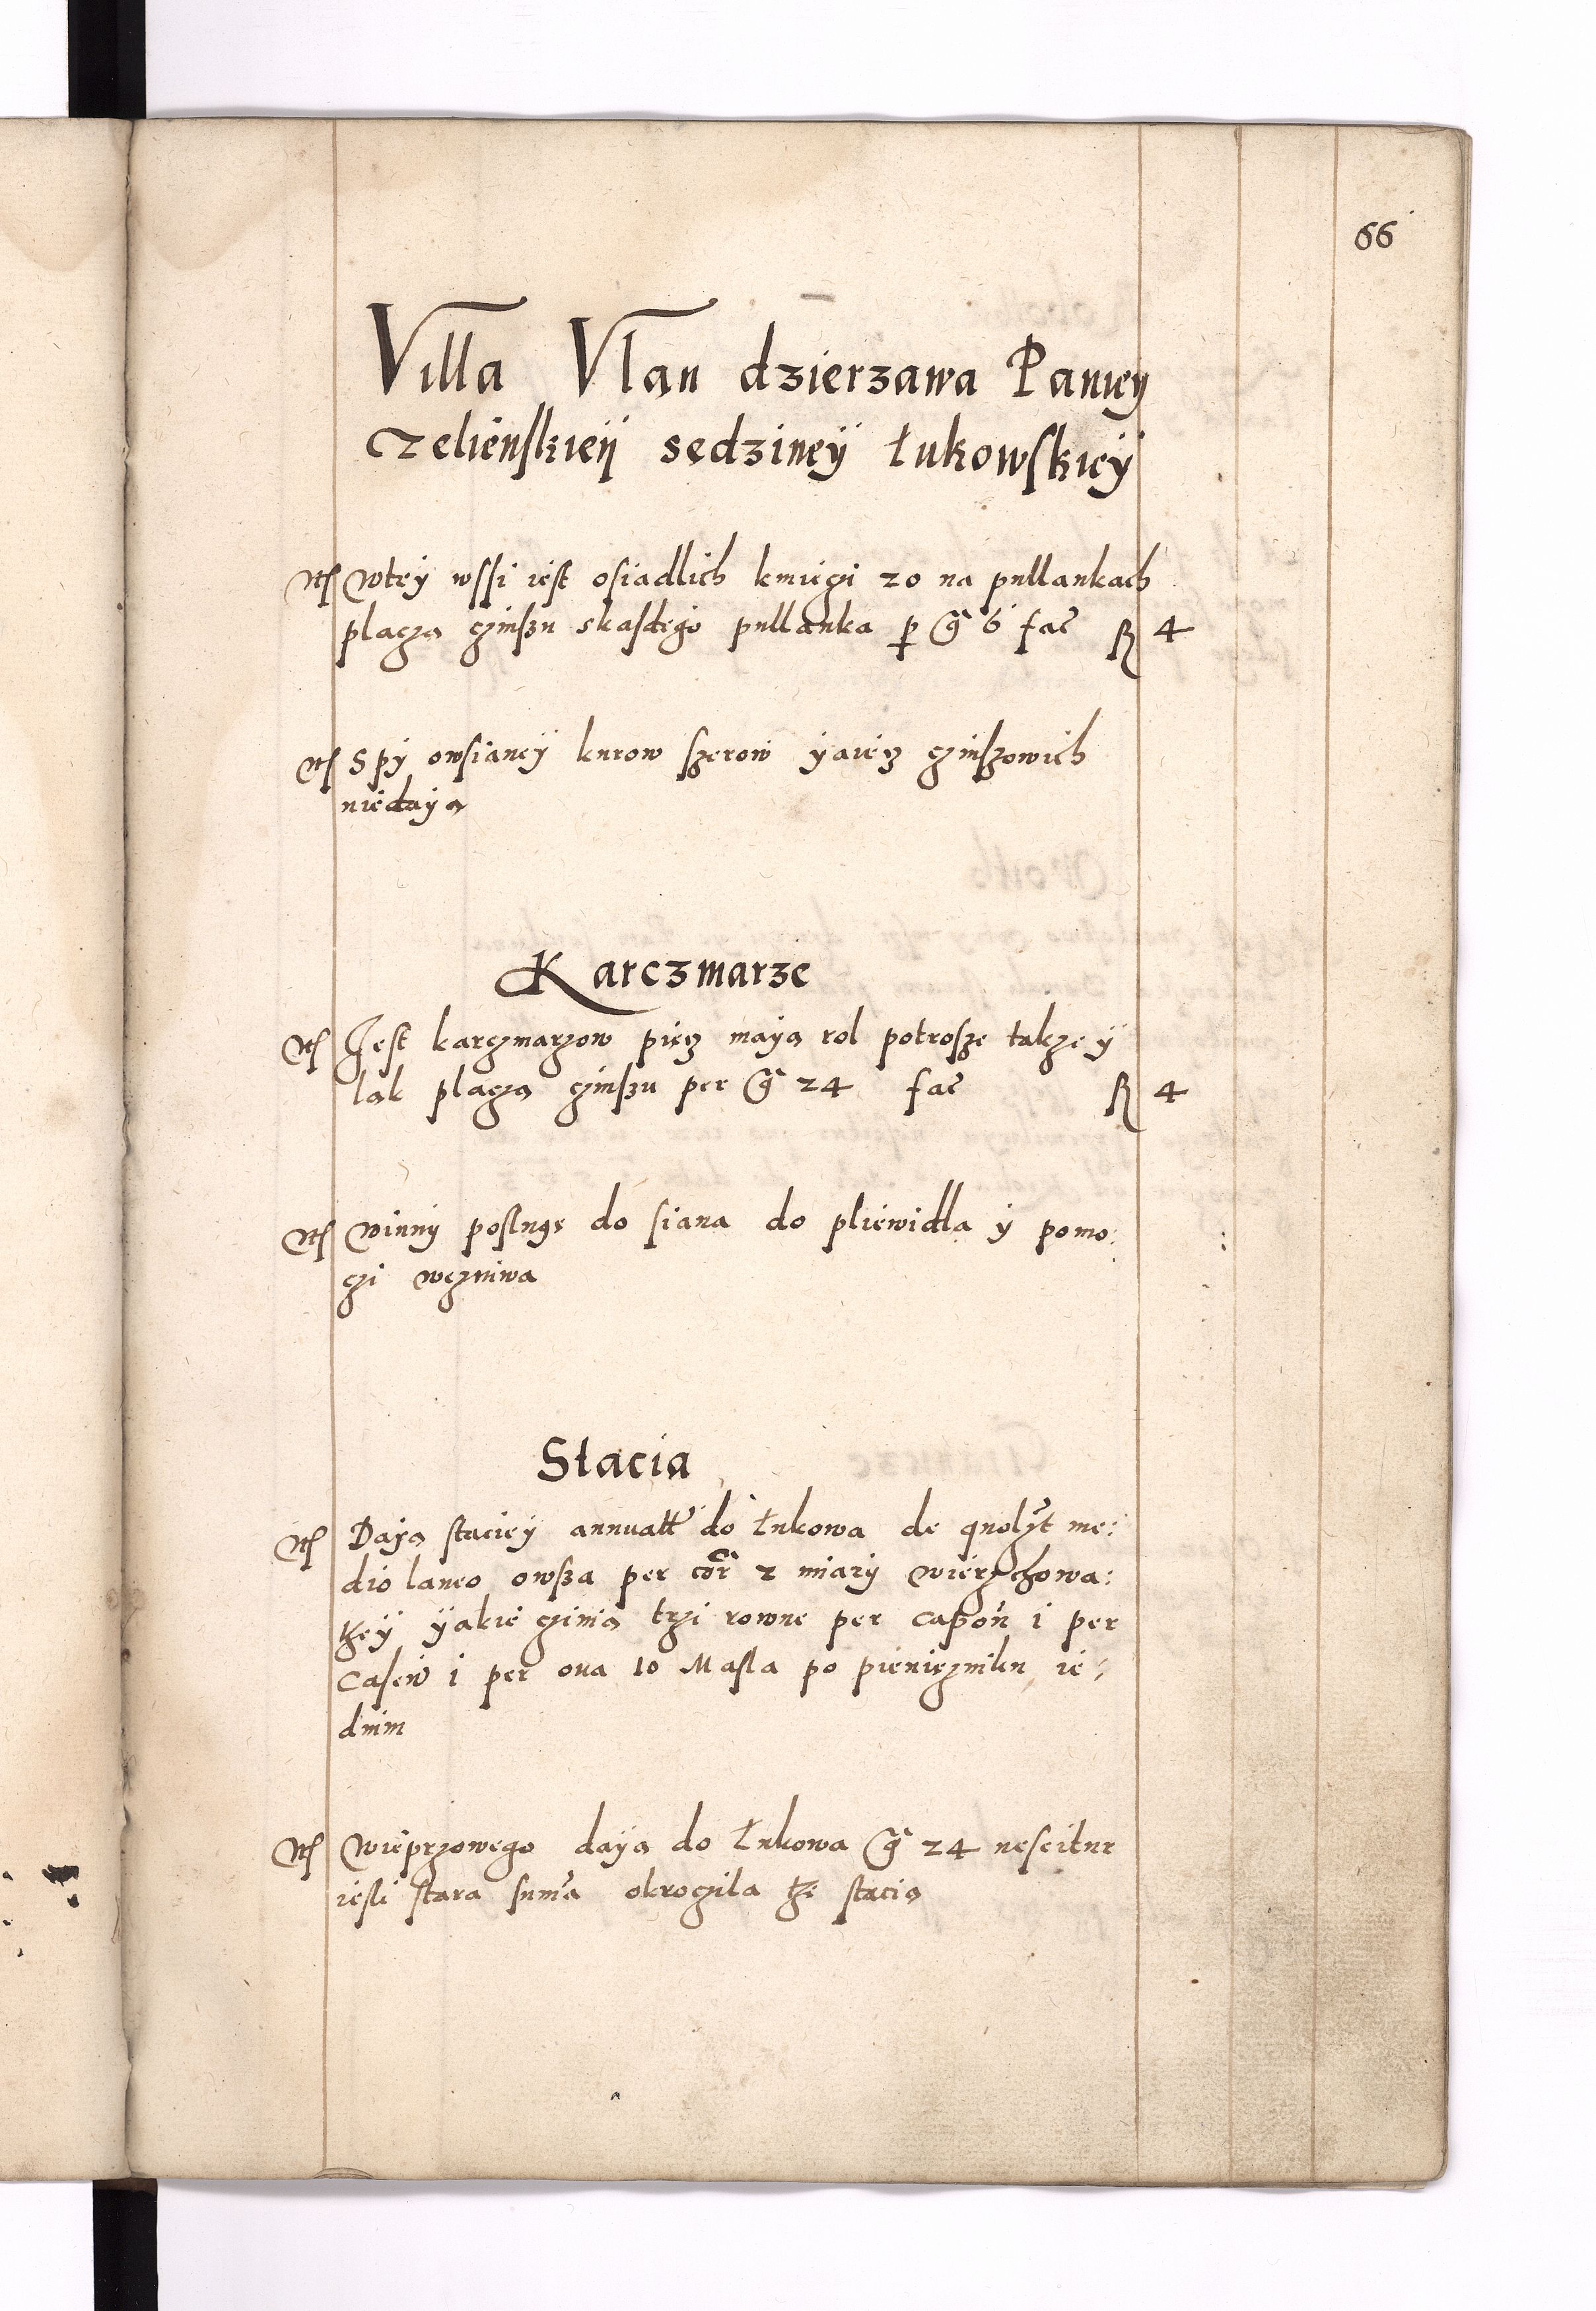 66
Villa Vlan dzierzawa Paniey
Czelienskieÿ sędzineÿ łukowskieÿ
Wteÿ wssi iest osiadlich kmieczi 20 na pullankach
placzą czinszu skasdego pullanka per g 6 fac R 4
Spÿ owsianeÿ kurow szerow ÿaiecz czinszowich
niedaÿą
Karczmarze
Jest karczmarzow piecz maÿą rol potrosze takze ÿ
ląk placzą czinszu per g 24 fac R 4
winnÿ poslugę do siana do pliewidla ÿ pomo:
czi wczniwa
Stacia
Daÿą stacieÿ annuatt do Łukowa de quolȳt me:
dio laneo owsza per cor 2 miarÿ wierzchowa:
theÿ ÿakie czinią trzi rowne per capon i per
Caseu i per oua 10 Masla po pienieznku ie:
dnim
Wieprzowego daÿą do Łukowa g 24 nescitur
iesli stara suma okroczila thę stacią